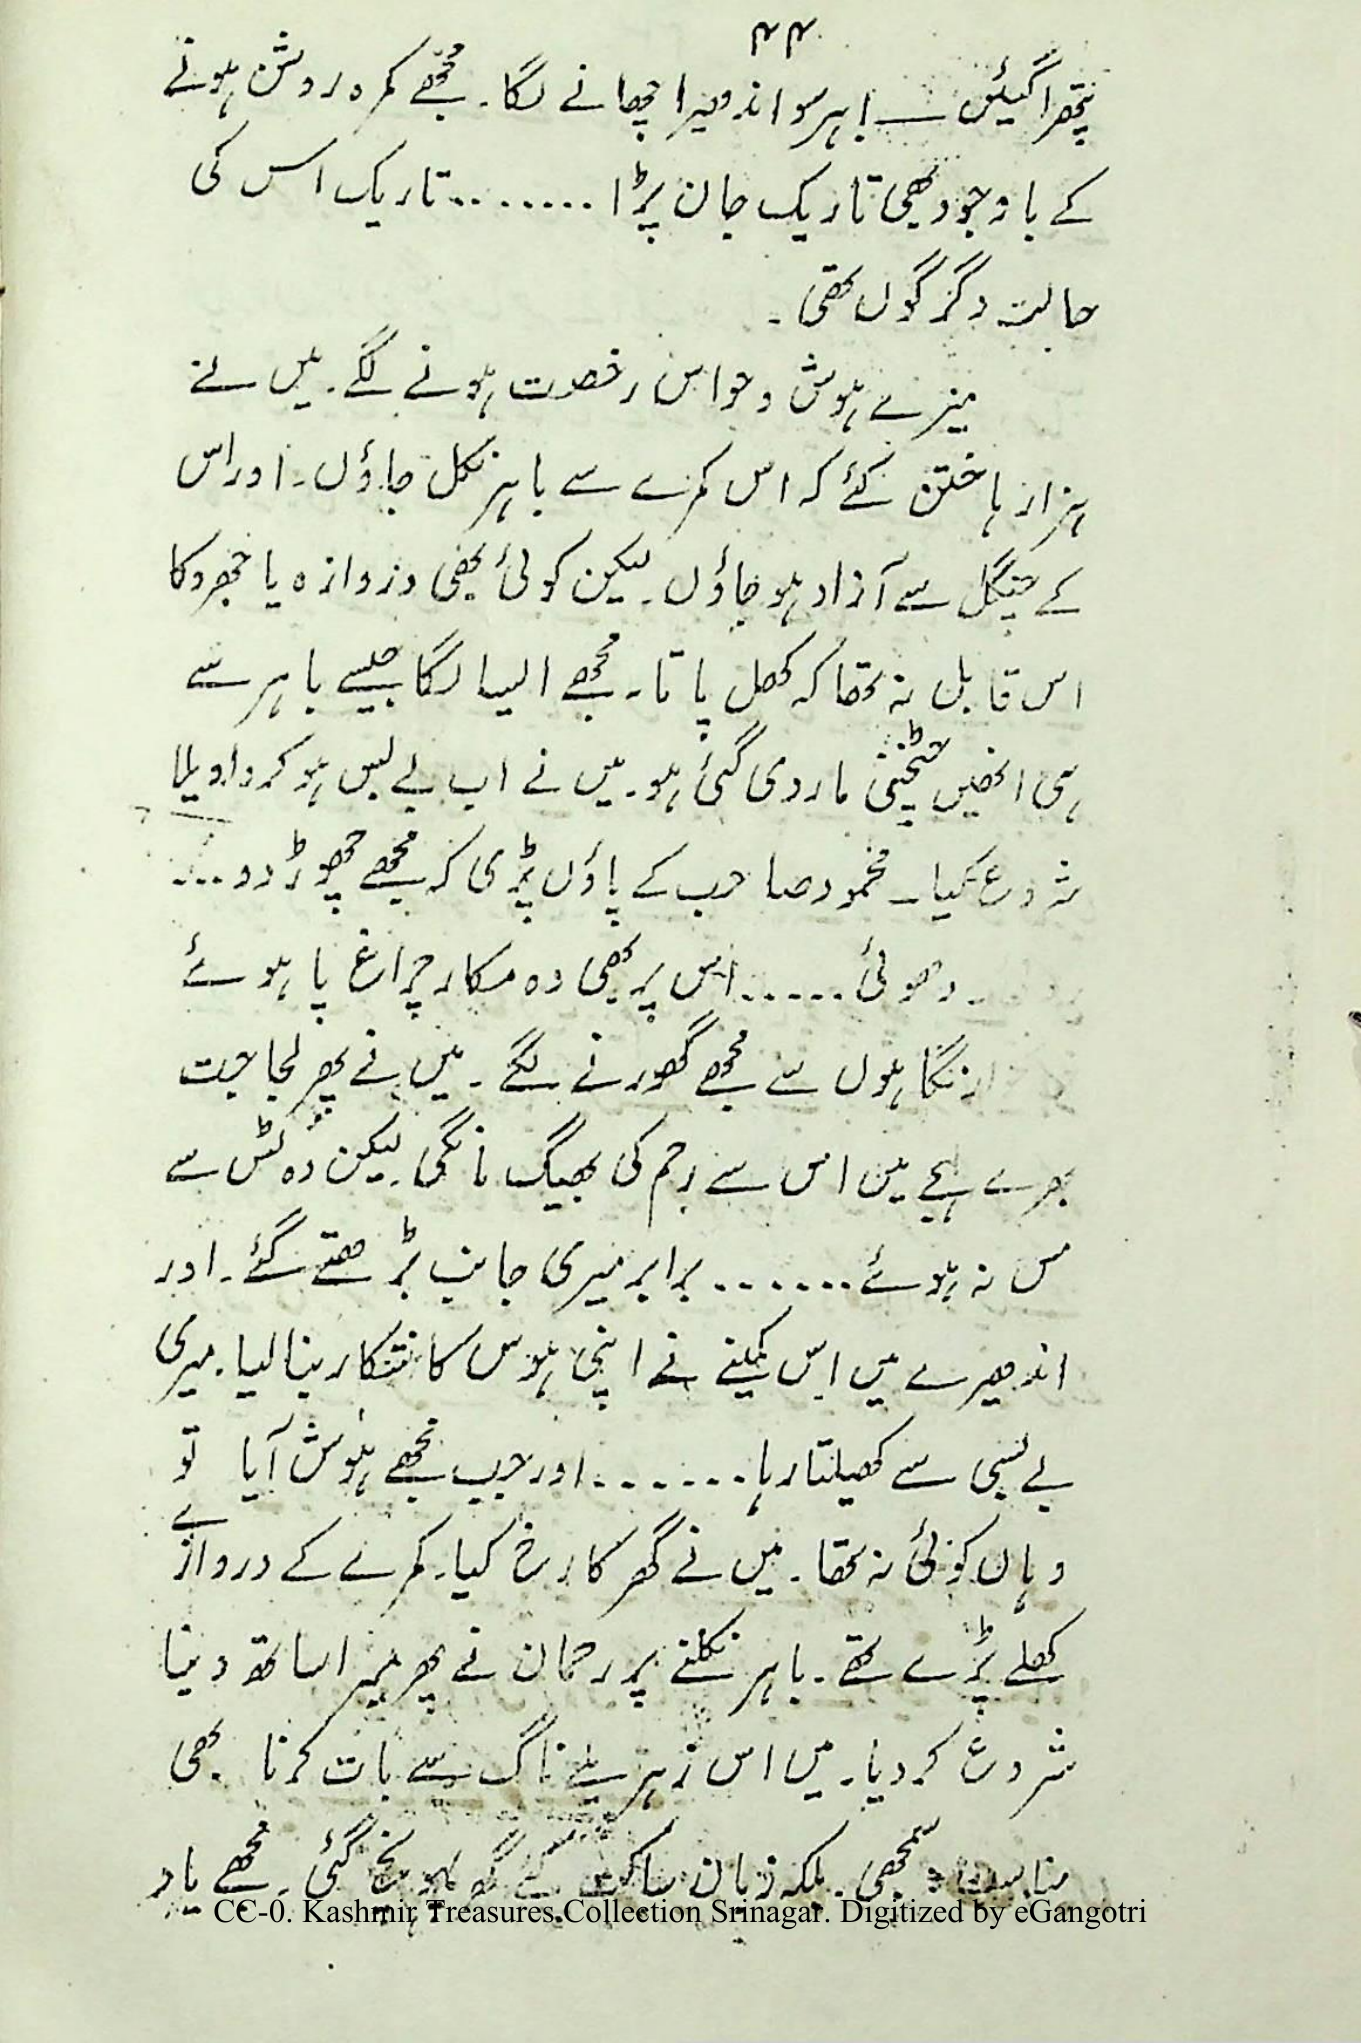 ۴۴
پتھرا گئیں ـــ اہر سو اندھیرا چھانے لگا۔ مجھے کمرہ روشن ہونے
کے باوجود بھی تاریک جان پڑا ........ تاریک اس کی
حالت دگرگوں تھی۔
میرے ہوش و حواس رخصت ہونے لگے۔ میں نے
ہزارہا جتن کئے کہ اس کمرے سے باہر نکل جاؤں۔ اور اس
کے چنگل سے آزاد ہو جاؤں۔ لیکن کوئی بھی دروازہ یا جھروکا
اس قابل نہ تھا کہ کھل پاتا۔ مجھے ایسا لگا جیسے باہر سے
ہی انھیں چٹخنی مار دی گئی ہو۔ میں نے اب بے بس ہو کر واویلا
شروع کیا۔ محمود صاحب کے پاؤں پڑی کہ مجھے چھوڑ دو ...
دھوئی ..... اس پر بھی وہ مکار چراغ پا ہوئے
نگاہوں سے مجھے گھورنے لگے۔ میں نے پھر لجاجت
بھرے لہجے میں اس سے رحم کی بھیگ مانگی۔ لیکن وہ ٹس سے
مس نہ ہوئے ....... برابر میری جانب بڑھتے گئے۔ اور
اندھیرے میں اس کمینے نے اپنی ہوس کا شکار بنا لیا۔ میری
بے بسی سے کھیلتا رہا ....... اور جب مجھے ہوش آیا تو
وہاں کوئی نہ تھا۔ میں نے گھر کا رخ کیا۔ کمرے کے دروازے
کھلے پڑے تھے۔ باہر نکلنے پر رحمان نے پھر میرا ساتھ دینا
شروع کر دیا۔ میں اس زہریلے ناگ سے بات کرنا بھی
مناسب نہ سمجھی۔ بلکہ زبان ساکت کئے گھر پہونچ گئی۔ مجھے یاد
CC-0. Kashmir Treasures Collection Srinagar. Digitized by eGangotri